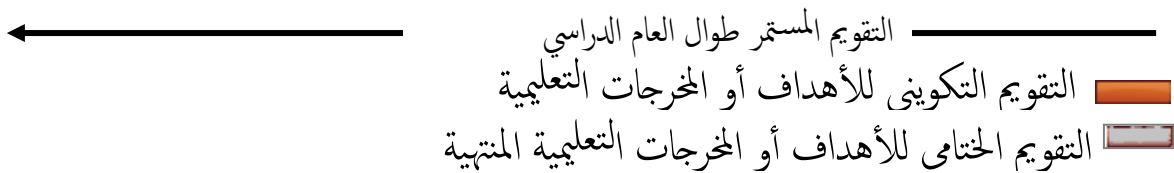 التقويم المستمر طوال العام الدراسي
التقويم التكويني للأهداف أو المخرجات التعليمية
التقويم الختامي للأهداف أو المخرجات التعليمية المنتهية